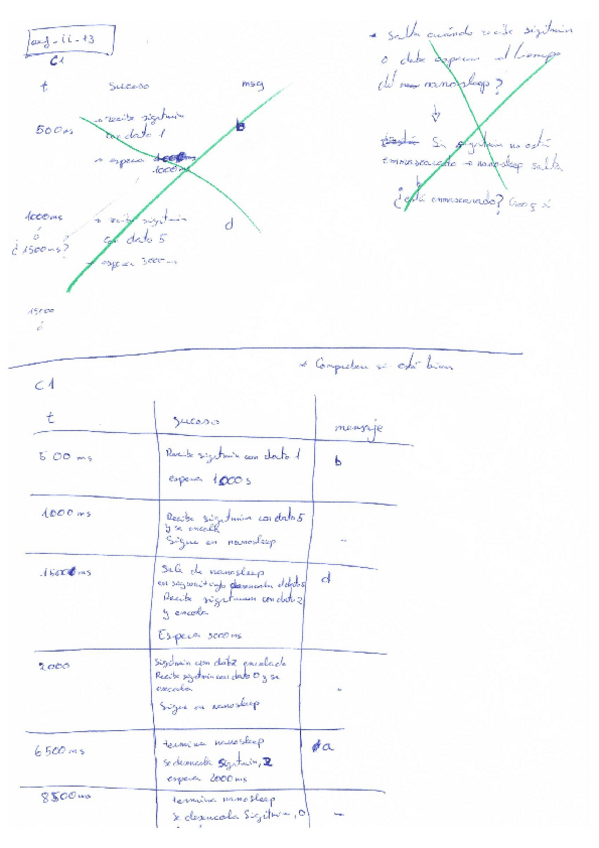 C1
t suceso msg
500ms → recibe sigrtmin b
con dato 1
→ espera 1000ms
1000ms → recibe sigrtmin d
ó con dato 5
¿1500ms? → espera
ó
* Salta cuándo recibe sigrtmin
o debe esperar el tiempo
del nanosleep?
Si sigrtmin no está
enmascarado → nanosleep salta
¿está enmascarado? Creo q sí
* Comprobar si está bien
C1
t suceso mensaje
500 ms Recibe sigrtmin con dato 1 b
espera 1000 s
1000 ms Recibe sigrtmin con dato 5 -
y se encola
Sigue en nanosleep
ms Sale de nanosleep d
desencola
Recibe sigrtmin con dato 2
y encola
Espera ms
2000 Sigrtmin con dato 2 encolado -
Recibe sigrtmin con dato 0 y se
encola
Sigue en nanosleep
6500 ms termina nanosleep a
se desencola Sigrtmin, 2
espera 2000 ms
8500ms termina nanosleep -
se desencola Sigrtmin, 0